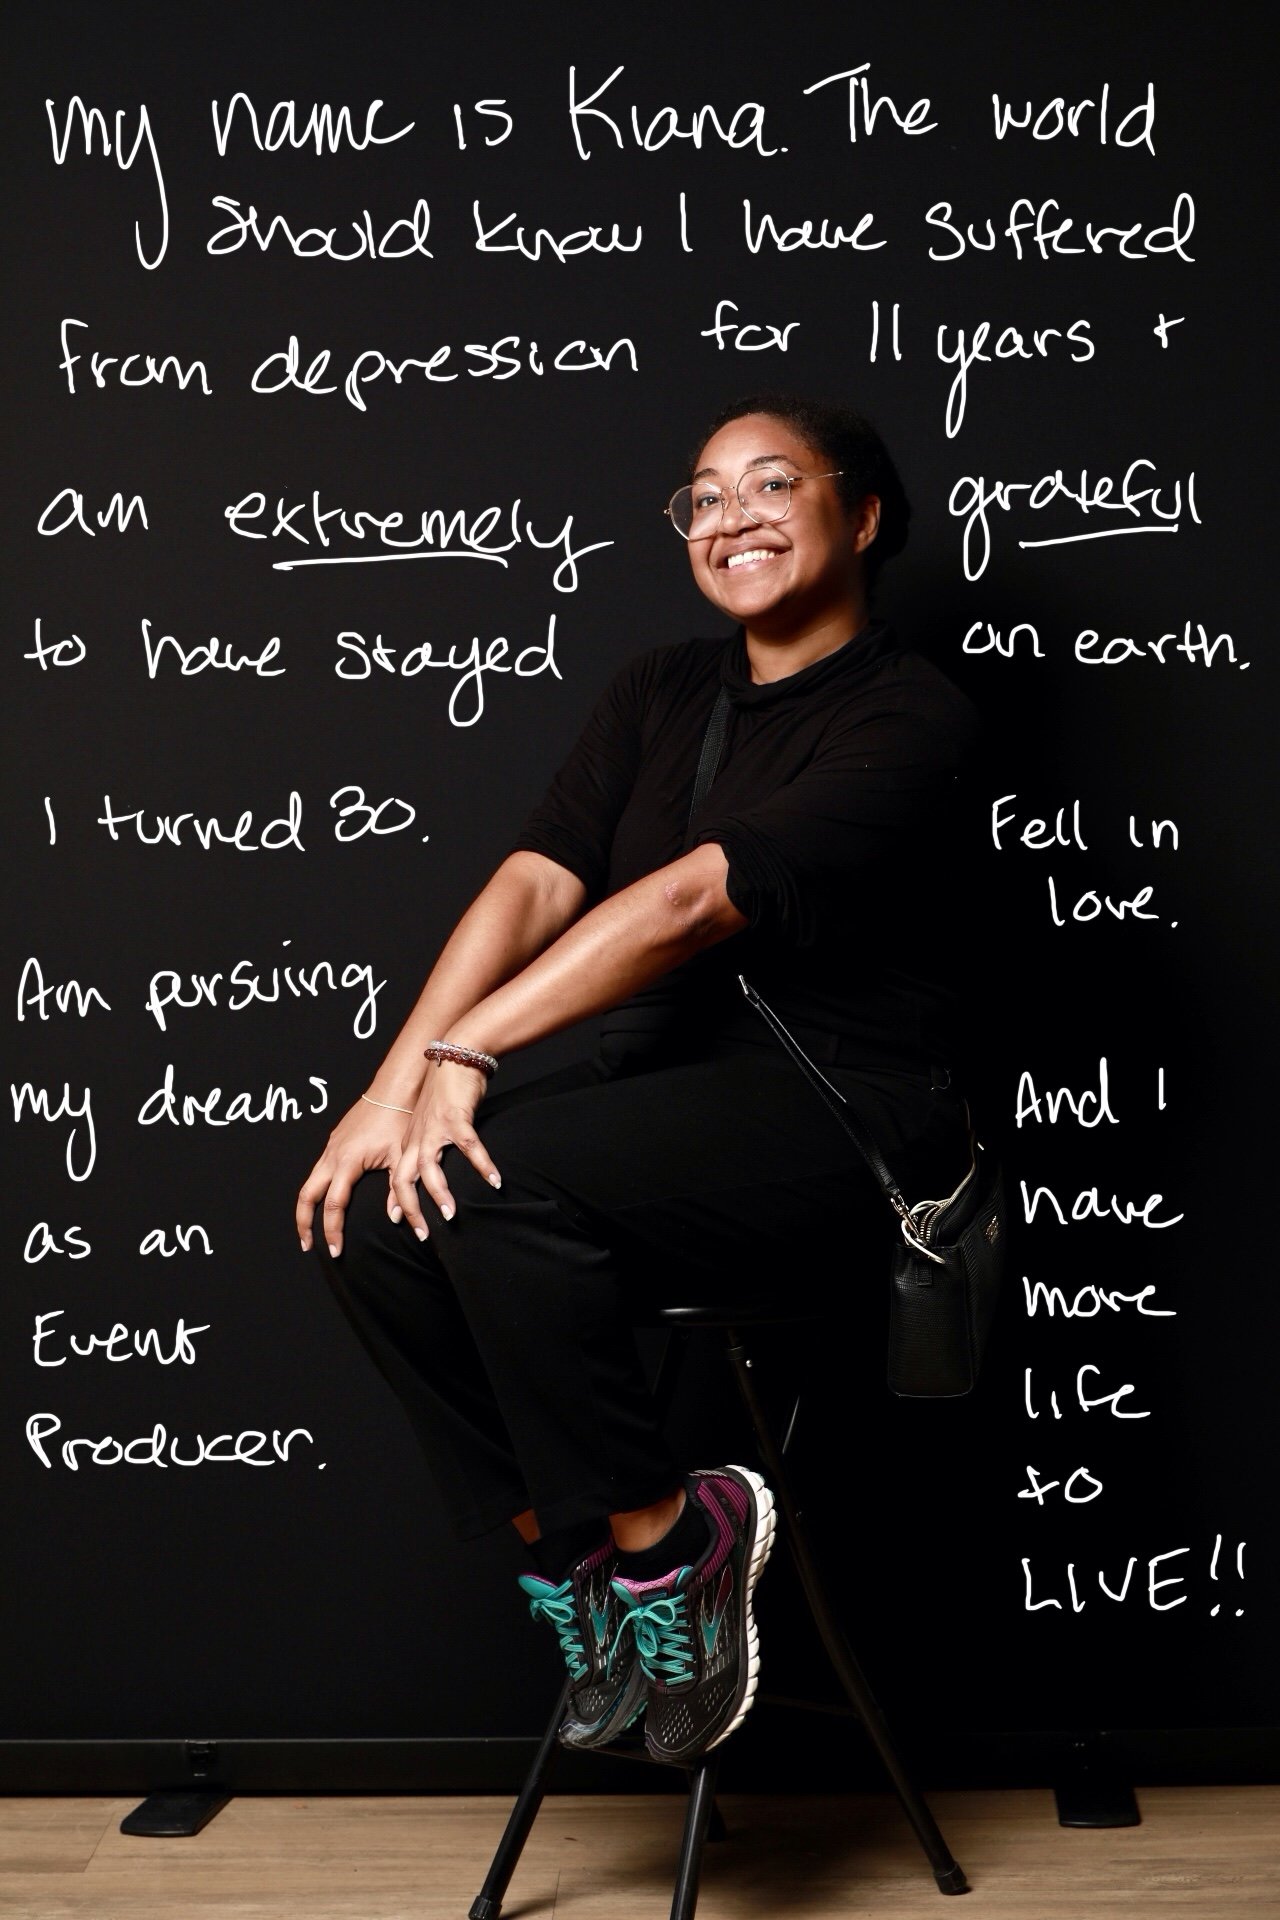 my name is Kiana. The world
should know I have suffered
from depression for 11 years +
am extremely grateful
to have stayed on earth.
I turned 30. Fell in
love.
Am pursuing
my dreams
as an
Event
Producer.
And I
have
more
life
to
LIVE!!